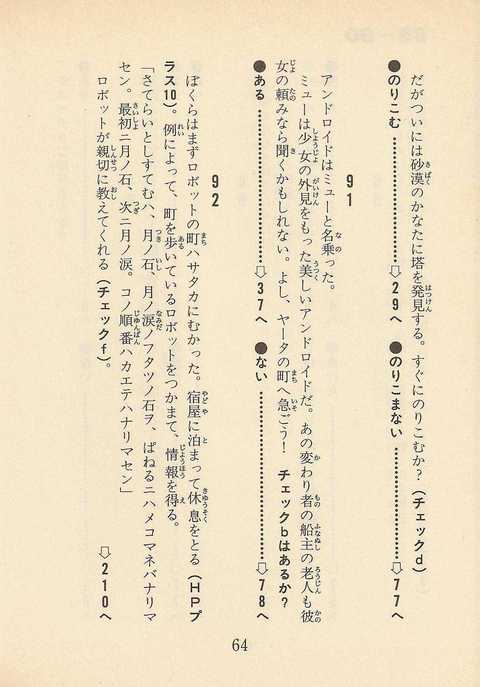 だがついには砂漠のかなたに塔を発見する。すぐにのりこむか?(チェックd)
●のりこむ……………⇨29へ ●のりこまない……………⇨77へ
91
アンドロイドはミューと名乗った。
ミューは少女の外見をもった美しいアンドロイドだ。あの変わり者の船主の老人も彼
女の頼みなら聞くかもしれない。よし、ヤータの町へ急ごう! チェックbはあるか?
●ある……………⇨37へ ●ない……………⇨78へ
92
ぼくらはまずロボットの町ハサタカにむかった。宿屋に泊まって休息をとる(HPプ
ラス10)。例によって、町を歩いているロボットをつかまて、情報を得る。
「さてらいとしすてむハ、月ノ石、月ノ涙ノフタツノ石ヲ、ぱねるニハメコマネバナリマ
セン。最初ニ月ノ石、次ニ月ノ涙。コノ順番ハカエテハナリマセン」
ロボットが親切に教えてくれる(チェックf)。
⇨210へ
64